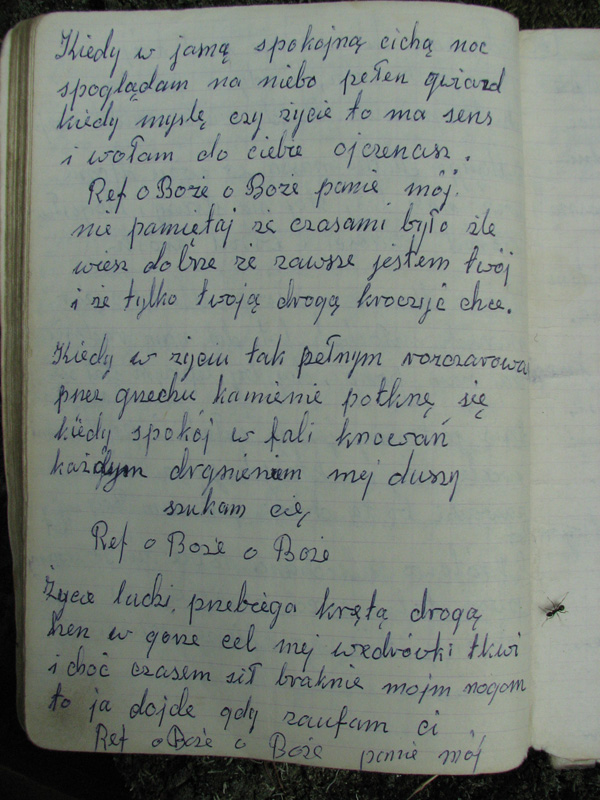 Kiedy w jamą spokojną cichą noc
spoglądam na niebo pełen gwiazd
kiedy myslę czy życie to ma sens
i wołam do ciebie ojczenasz.
Ref o Boże o Boże panie mój.
nie pamiętaj że czasami było źle
wiesz dobrze że zawsze jestem twój
i że tylko twoją drogą kroczyć chce.
Kiedy w życiu tak pełnym rozczarowa
przez grzechu kamienie potknę się
kiedy spokój w fali knowań
każdym drgnieniem mej duszy
szukam cię
Ref o Boże o Boże
Życie ludzi, przebiega krętą drogą
hen w gorze cel mej wędrówki tkwi
i choć czasem sił braknie mojm nogom
to ja dojde gdy zaufam ci
Ref o Boże o Boże panie mój